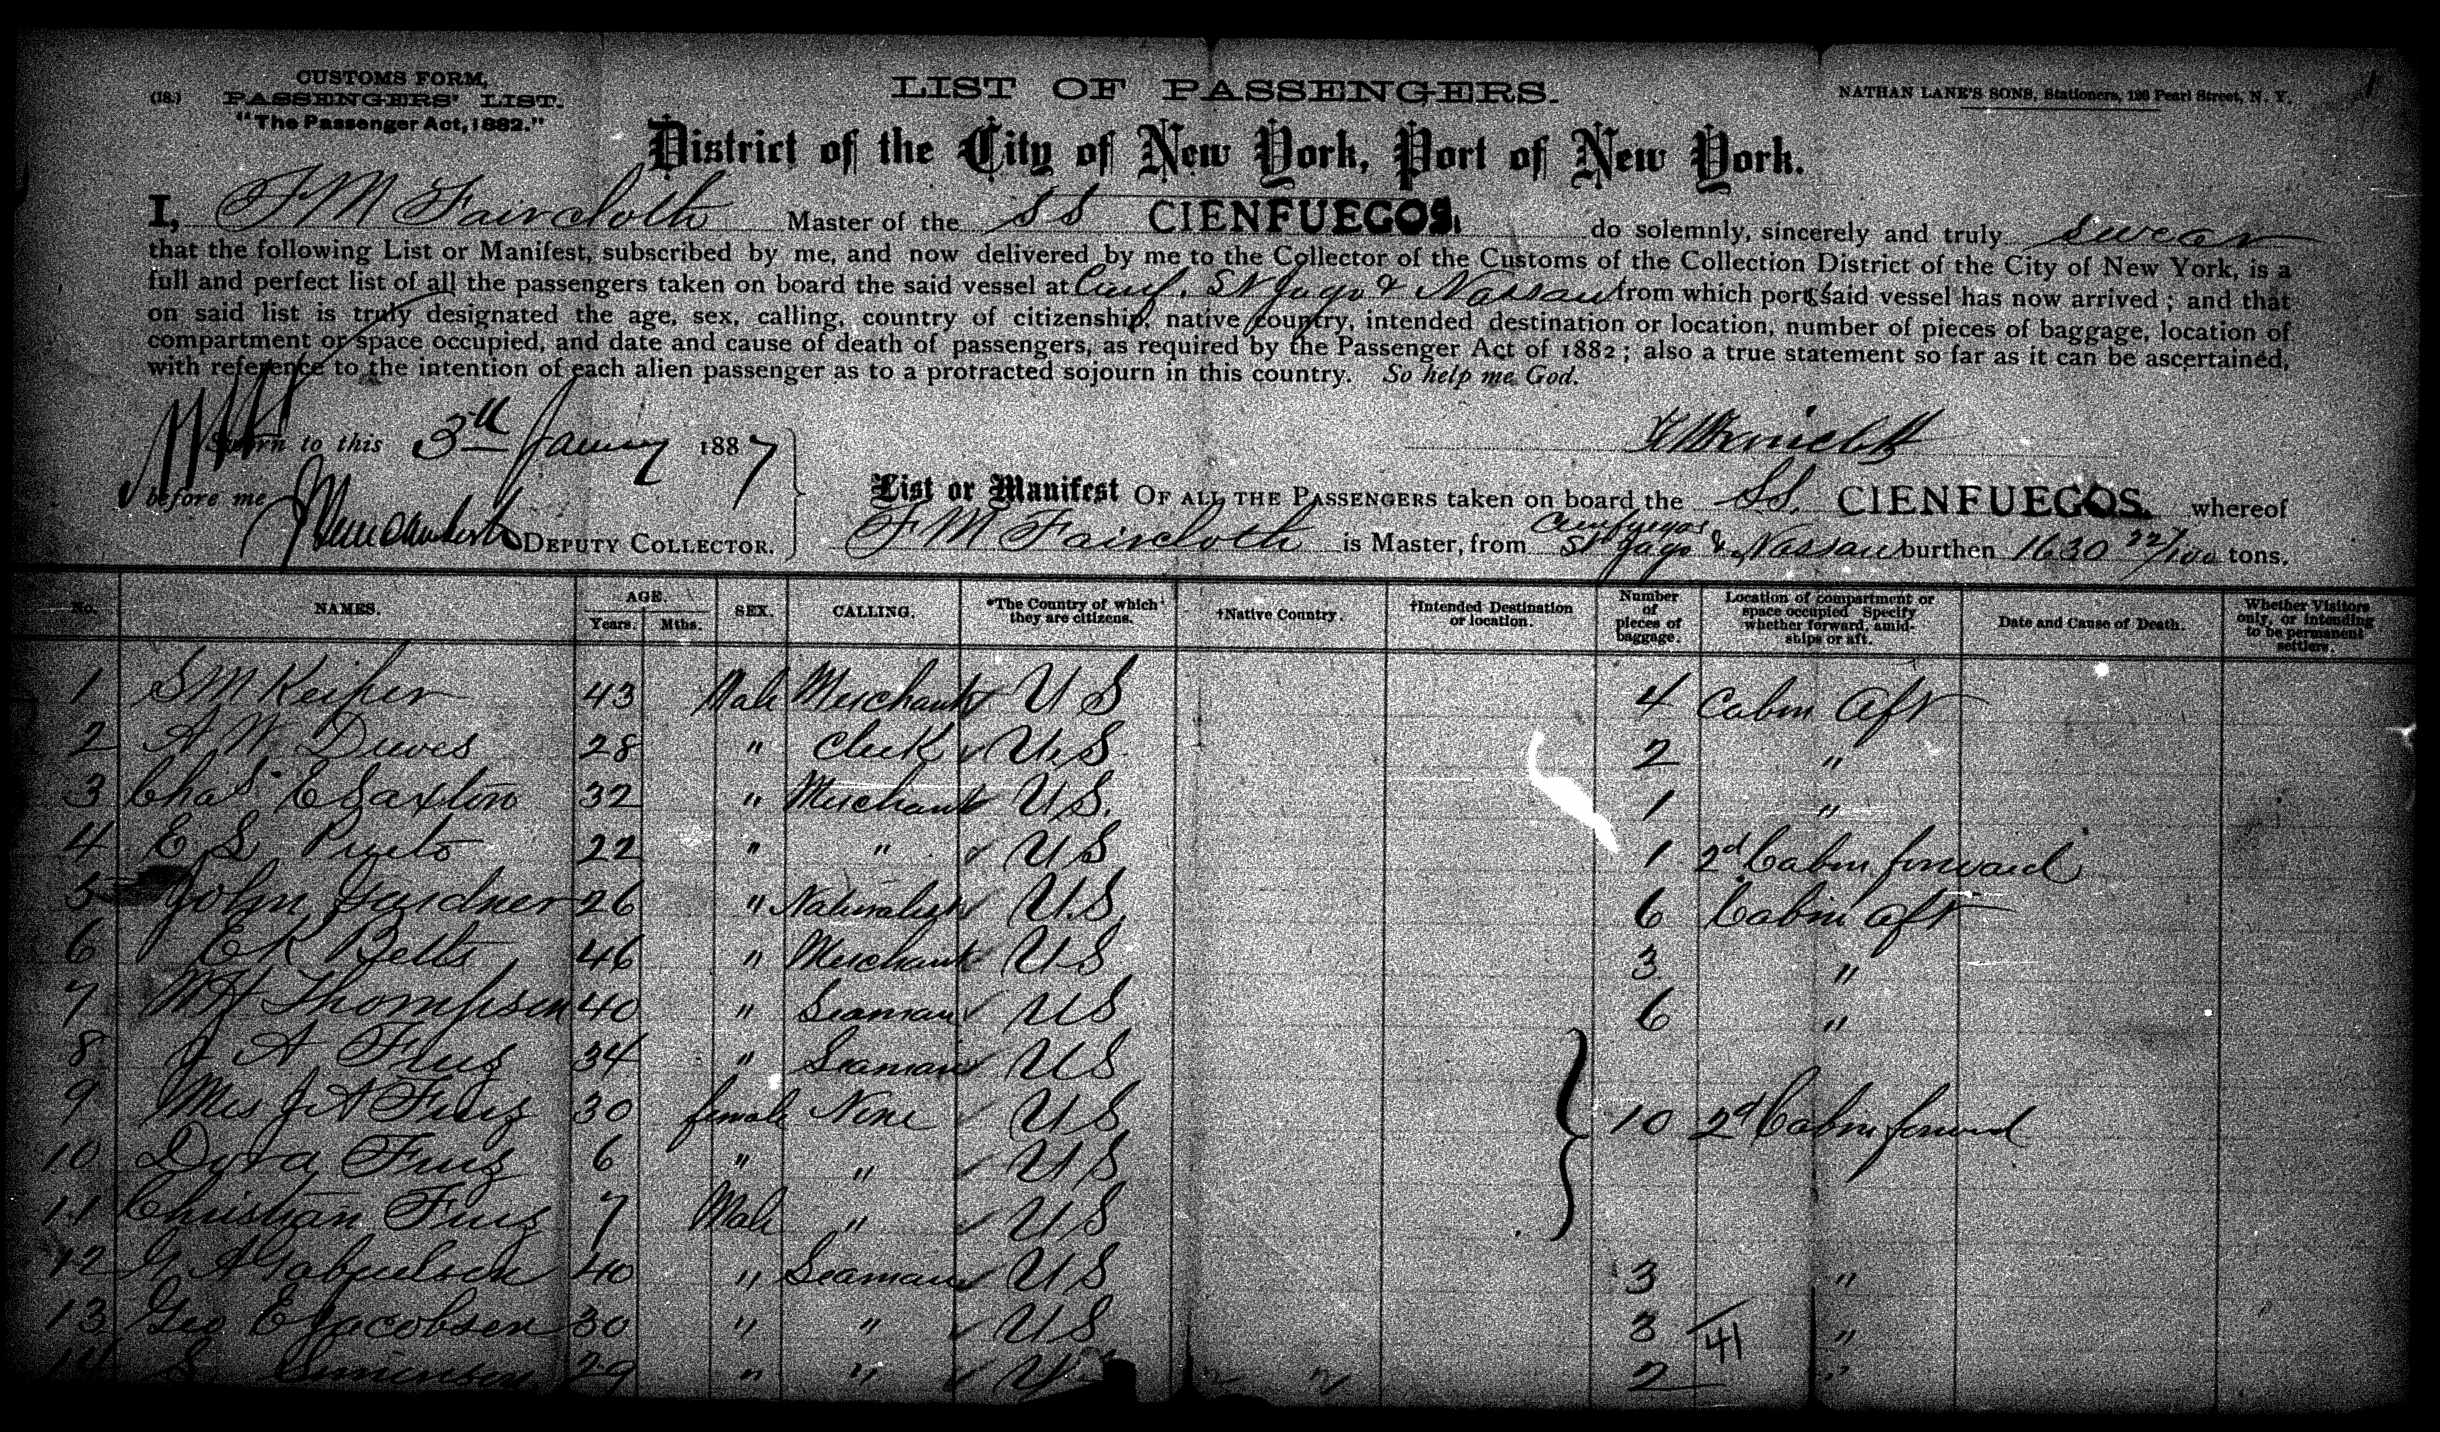 CUSTOMS FORM,
(18.) PASSENGERS' LIST.
"The Passenger Act, 1882."
LIST OF PASSENGERS.
NATHAN LANE'S SONS, Stationers, 196 Pearl Street, N. Y.
1
District of the City of New York, Port of New York.
I, F M Faircloth Master of the SS CIENFUEGOS, do solemnly, sincerely and truly swear
that the following List or Manifest, subscribed by me, and now delivered by me to the Collector of the Customs of the Collection District of the City of New York, is a
full and perfect list of all the passengers taken on board the said vessel at Cienf. St Jago & Nassau from which port said vessel has now arrived; and that
on said list is truly designated the age, sex, calling, country of citizenship, native country, intended destination or location, number of pieces of baggage, location of
compartment or space occupied, and date and cause of death of passengers, as required by the Passenger Act of 1882; also a true statement so far as it can be ascertained,
with reference to the intention of each alien passenger as to a protracted sojourn in this country. So help me God.
Sworn to this 3th January 1887
before me
DEPUTY COLLECTOR.
List or Manifest OF ALL THE PASSENGERS taken on board the SS. CIENFUEGOS, whereof
F M Faircloth is Master, from Cienfuegos St Jago & Nassau burthen 1630 22/100 tons.
No. NAMES. AGE. Years. Mths. SEX. CALLING. *The Country of which they are citizens. †Native Country. †Intended Destination or location. Number of pieces of baggage. Location of compartment or space occupied. Specify whether forward, amidships or aft. Date and Cause of Death. Whether Visitors only, or intending to be permanent settlers.
1 S M Keiper 43 Male Merchant U S 4 Cabin Aft
2 A W Dewes 28 " Clerk U.S. 2 "
3 Chas E Saxton 32 " Merchant U.S. 1 "
4 E S 22 " " U S 1 2d Cabin forward
5 John Gardner 26 " Naturalist U.S. 6 Cabin aft
6 E K Betts 46 " Merchant U S 3 "
7 W H Thompson 40 " Seaman U S 6 "
8 J A 34 " Seaman U S
9 Mrs J A 30 female None U S 10 2d Cabin forward
10 Dora 6 " " U S
11 Christian 7 Male " U S
12 G A Gabrielson 40 " Seaman U S 3 "
13 Geo E Jacobsen 30 " " U S 3 41 "
14 S. Simonsen 29 " " U S 2 "